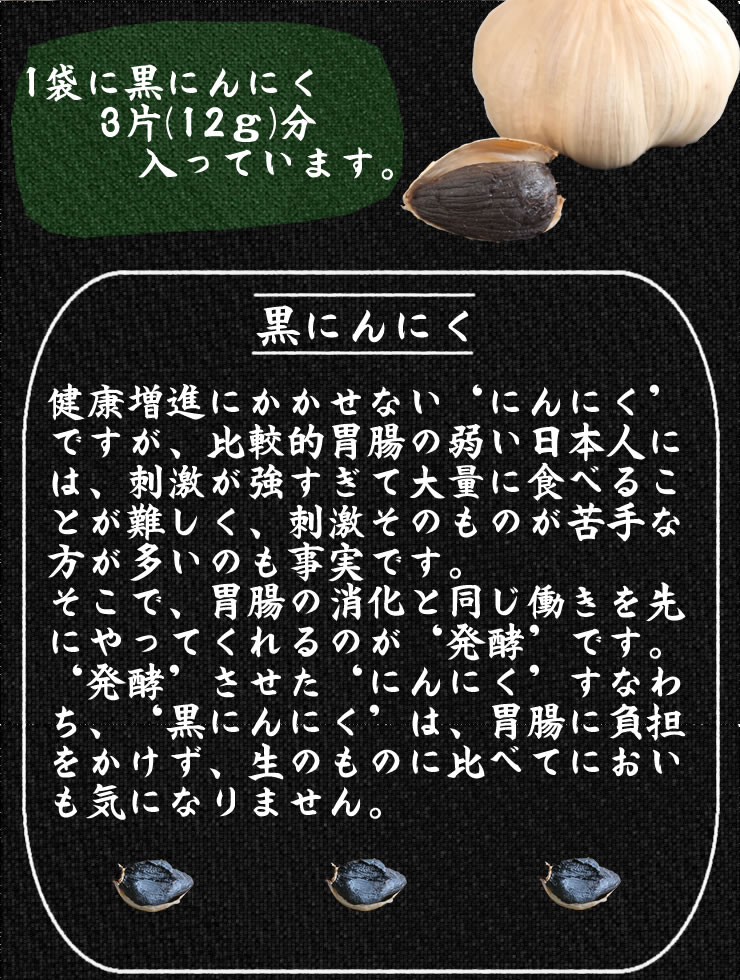 1袋に黒にんにく
3片(12g)分
入っています。
黒にんにく
健康増進にかかせない‘にんにく’
ですが、比較的胃腸の弱い日本人に
は、刺激が強すぎて大量に食べるこ
とが難しく、刺激そのものが苦手な
方が多いのも事実です。
そこで、胃腸の消化と同じ働きを先
にやってくれるのが‘発酵’です。
‘発酵’させた‘にんにく’すなわ
ち、‘黒にんにく’は、胃腸に負担
をかけず、生のものに比べてにおい
も気になりません。